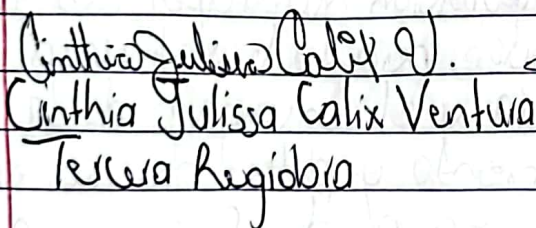 Cinthia Julissa Calix V.
Cinthia Julissa Calix Ventura
Tercera Regidora